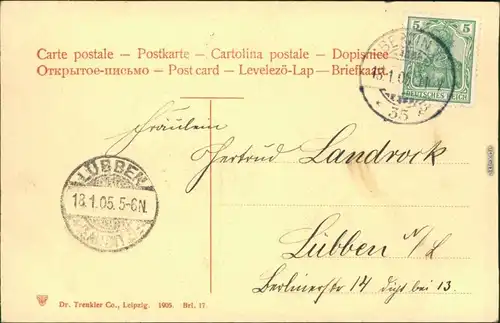 Carte postale — Postkarte — Cartolina postale — Dopisnice
Открытое-письмо — Post card — Levelező-Lap — Briefkaart
5 5
DEUTSCHES REICH
BERLIN
18.1.05
35
Fräulein
Gertrud Landrock
Lübben N/L
Berlinerstr 14 dicht bei 13.
LÜBBEN
18.1.05. 5-6N.
Dr. Trenkler Co., Leipzig. 1905. Bel. 17.